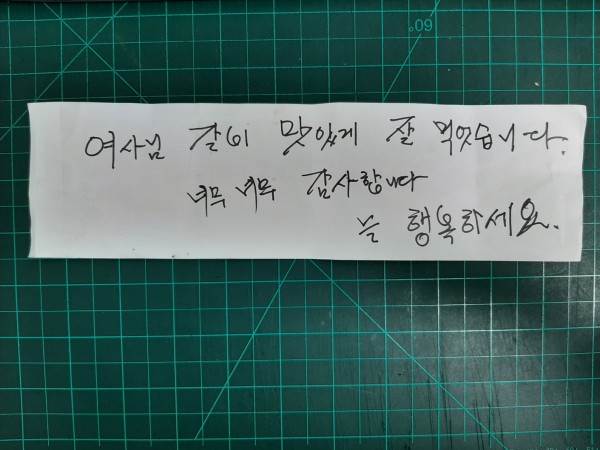 60
여사님 갈비 맛있게 잘 먹었습니다.
너무 너무 감사합니다
늘 행복하세요.